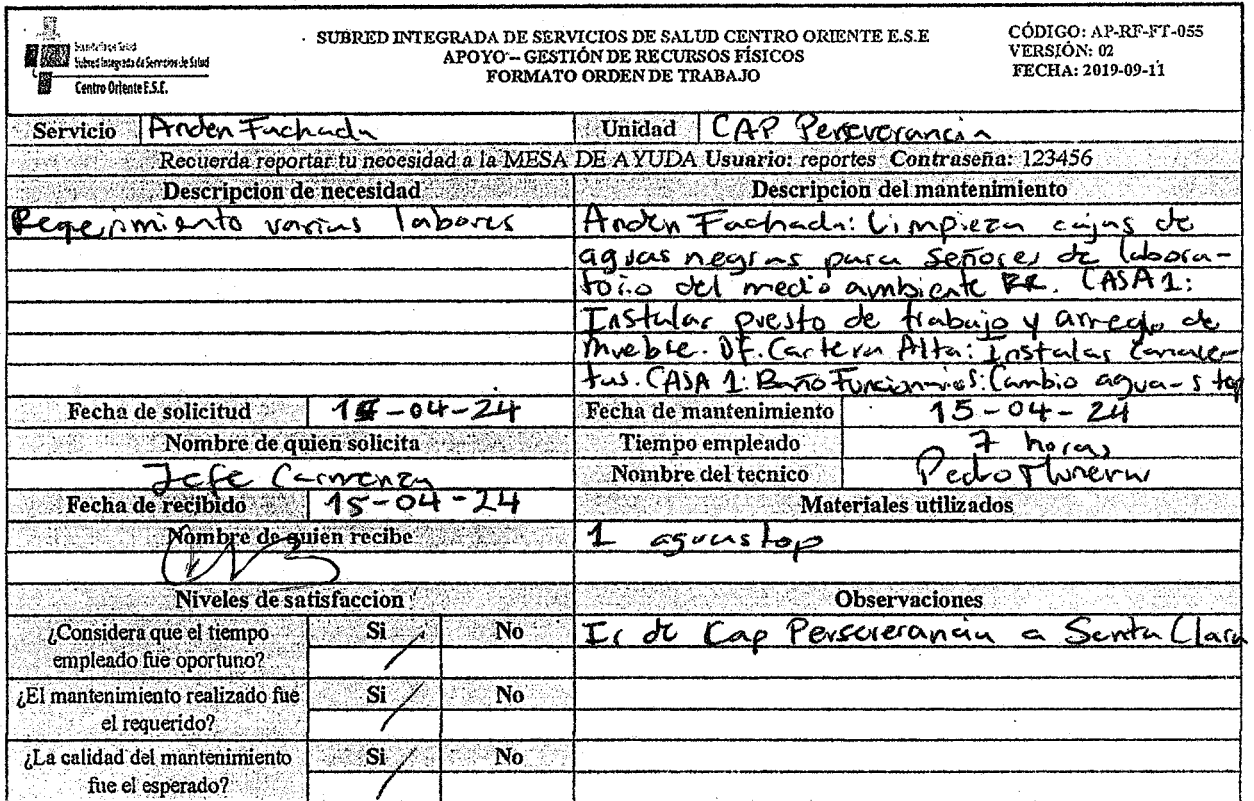 Secretaría de Salud
Subred Integrada de Servicios de Salud
Centro Oriente E.S.E.
SUBRED INTEGRADA DE SERVICIOS DE SALUD CENTRO ORIENTE E.S.E
APOYO – GESTIÓN DE RECURSOS FÍSICOS
FORMATO ORDEN DE TRABAJO
CÓDIGO: AP-RF-FT-055
VERSIÓN: 02
FECHA: 2019-09-11
Servicio Anden Fachada Unidad CAP Perseverancia
Recuerda reportar tu necesidad a la MESA DE AYUDA Usuario: reportes Contraseña: 123456
Descripcion de necesidad Descripcion del mantenimiento
Requerimiento varias labores
Anden Fachada: Limpieza cajas de
aguas negras para señores de labora-
torio del medio ambiente RR. CASA 1:
Instalar puesto de trabajo y arreglo de
mueble. Of. Cartera Alta: Instalar canale-
tas. CASA 1: Baño Funcionarios: Cambio agua-stop
Fecha de solicitud 15-04-24 Fecha de mantenimiento 15-04-24
Nombre de quien solicita Tiempo empleado 7 horas
Jefe Carmenza Nombre del tecnico Pedro Munera
Fecha de recibido 15-04-24 Materiales utilizados
Nombre de quien recibe 1 aguastop
Niveles de satisfaccion Observaciones
¿Considera que el tiempo
empleado fue oportuno?
Si No
Ir de Cap Perseverancia a Santa Clara
¿El mantenimiento realizado fue
el requerido?
Si No
¿La calidad del mantenimiento
fue el esperado?
Si No